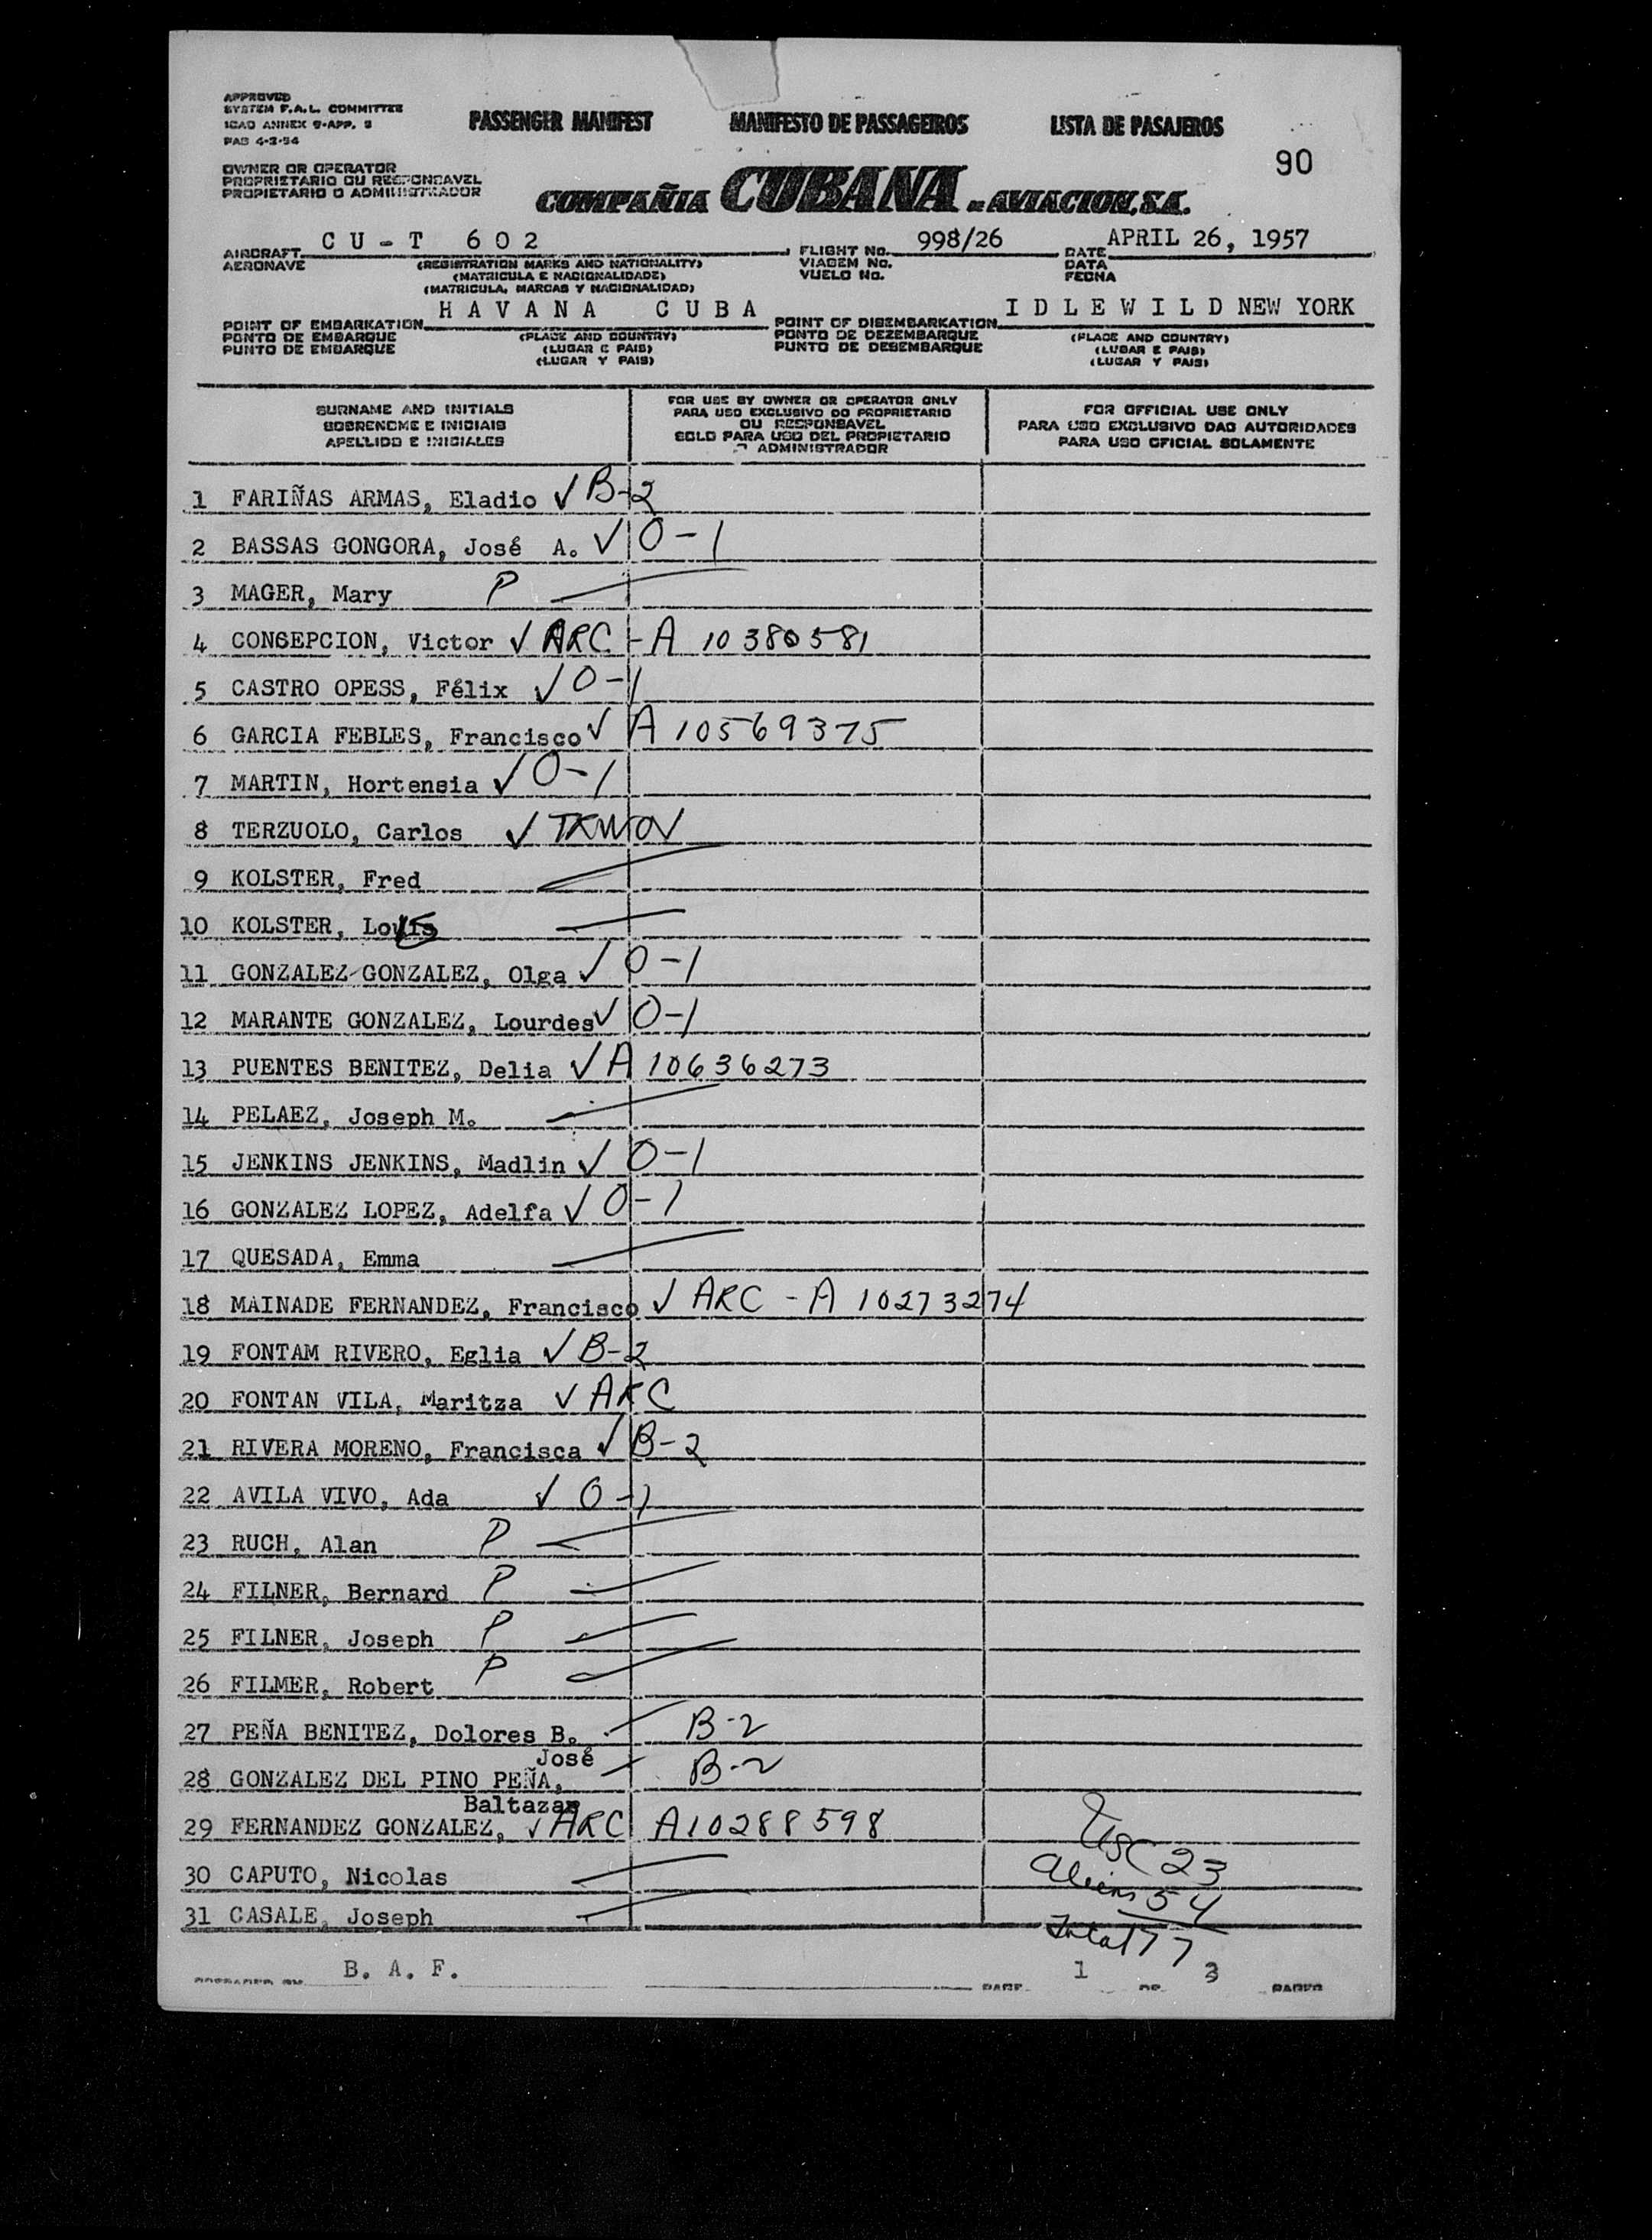 APPROVED
SYSTEM F.A.L. COMMITTEE
ICAO ANNEX 9-APP. 3
PAS 4-2-54
PASSENGER MANIFEST MANIFESTO DE PASSAGEIROS LISTA DE PASAJEROS
90
OWNER OR OPERATOR
PROPRIETARIO OU RESPONSAVEL
PROPIETARIO O ADMINISTRADOR
COMPAÑIA CUBANA DE AVIACION, S.A.
AIRCRAFT CU-T 602 FLIGHT No. 998/26 DATE APRIL 26, 1957
AERONAVE (REGISTRATION MARKS AND NATIONALITY) VIAGEM No. DATA
(MATRICULA E NACIONALIDADE) VUELO No. FECHA
(MATRICULA, MARCAS Y NACIONALIDAD)
POINT OF EMBARKATION HAVANA CUBA POINT OF DISEMBARKATION IDLEWILD NEW YORK
PONTO DE EMBARQUE (PLACE AND COUNTRY) PONTO DE DEZEMBARQUE (PLACE AND COUNTRY)
PUNTO DE EMBARQUE (LUGAR E PAIS) PUNTO DE DESEMBARQUE (LUGAR E PAIS)
(LUGAR Y PAIS) (LUGAR Y PAIS)
SURNAME AND INITIALS
SOBRENOME E INICIAIS
APELLIDO E INICIALES
FOR USE BY OWNER OR OPERATOR ONLY
PARA USO EXCLUSIVO DO PROPRIETARIO
OU RESPONSAVEL
SOLO PARA USO DEL PROPIETARIO
O ADMINISTRADOR
FOR OFFICIAL USE ONLY
PARA USO EXCLUSIVO DAO AUTORIDADES
PARA USO OFICIAL SOLAMENTE
1 FARIÑAS ARMAS, Eladio ✓ B-2
2 BASSAS GONGORA, José A. ✓ O-1
3 MAGER, Mary P
4 CONSEPCION, Victor ✓ ARC - A 10380581
5 CASTRO OPESS, Félix ✓ O-1
6 GARCIA FEBLES, Francisco ✓ A 10569375
7 MARTIN, Hortensia ✓ O-1
8 TERZUOLO, Carlos ✓ TRWOV
9 KOLSTER, Fred
10 KOLSTER, Louis
11 GONZALEZ GONZALEZ, Olga ✓ O-1
12 MARANTE GONZALEZ, Lourdes ✓ O-1
13 PUENTES BENITEZ, Delia ✓ A 10636273
14 PELAEZ, Joseph M.
15 JENKINS JENKINS, Madlin ✓ O-1
16 GONZALEZ LOPEZ, Adelfa ✓ O-1
17 QUESADA, Emma
18 MAINADE FERNANDEZ, Francisco ✓ ARC - A 10273274
19 FONTAM RIVERO, Eglia ✓ B-2
20 FONTAN VILA, Maritza ✓ ARC
21 RIVERA MORENO, Francisca ✓ B-2
22 AVILA VIVO, Ada ✓ O-1
23 RUCH, Alan P
24 FILNER, Bernard P
25 FILNER, Joseph P
26 FILMER, Robert P
27 PEÑA BENITEZ, Dolores B. B-2
José
28 GONZALEZ DEL PINO PEÑA, B-2
Baltazar
29 FERNANDEZ GONZALEZ, ✓ ARC A10288598
30 CAPUTO, Nicolas
31 CASALE, Joseph
USC 23
Aliens 54
Total 77
B. A. F.
PAGE 1 OF 3 PAGES